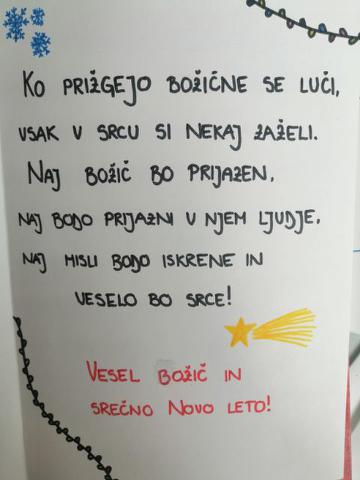 Ko prižgejo božične se luči,
vsak v srcu si nekaj zaželi.
Naj božič bo prijazen,
naj bodo prijazni v njem ljudje,
naj misli bodo iskrene in
veselo bo srce!
Vesel božič in
srečno Novo leto!